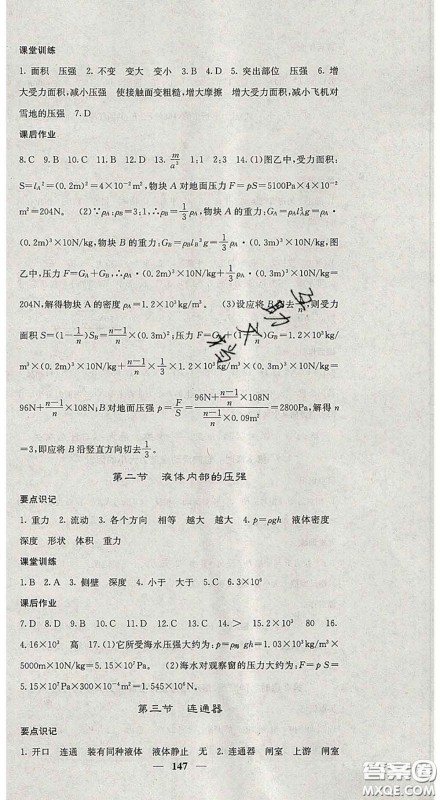 课堂训练
1. 面积　压强　2. 不变　变大　变小　4. D　5. 突出部位　压强　6. 增
大受力面积,减小压强　使接触面变粗糙,增大摩擦　增大受力面积,减小飞机对
雪地的压强　7. D
课后作业
8. C　9. B　10. C　11. D　12. D　13. m/a³　1:1　2:3　14. (1)图乙中,受力面积:
S=l_A²=(0.2m)²=4×10⁻²m²,物块 A 对地面压力 F=pS=5100Pa×4×10⁻²m²
=204N。　(2)∵ρ_A:ρ_B=3:1,∴ρ_B=1/3ρ_A,物块 A 的重力:G_A=ρ_A l_A³g=ρ_A·
(0.2m)³×10N/kg,物块 B 的重力:G_B=ρ_B l_B³g=1/3ρ_A·(0.3m)³×10N/kg,图
乙中,压力 F=G_A+G_B,∴ρ_A·(0.2m)³×10N/kg+1/3ρ_A·(0.3m)³×10N/kg=
204N,解得物块 A 的密度:ρ_A=1.2×10³kg/m³。　(3)设应将 B 切去1/n,则受力
面积 S=(1-1/n)S_B=(n-1)/n×0.09m²,压力 F=G_A+(1-1/n)G_B=1.2×10³kg/
m³×(0.2m)³×10N/kg+(n-1)/n×1/3×1.2×10³kg/m³×(0.3m)³×10N/kg=
96N+(n-1)/n×108N　B 对地面压强 p=F/S=(96N+(n-1)/n×108N)/((n-1)/n×0.09m²)=2800Pa,解得 n
=3,即应将 B 沿竖直方向切去1/3。
第二节　液体内部的压强
要点识记
1. 重力　2. 流动　3. 各个方向　相等　越大　越大　4. p=ρgh　液体密度
深度　形状　体积　重力
课堂训练
1. B　2. A　3. 侧壁　深度　4. 小于　大于　5. C　6. 6.3×10⁶
课后作业
7. D　8. D　9. B　10. D　11. C　12. C　13. C　14. >　15. 2×10³　80　16
4. 16×10³　高　17. (1)它所受海水压强大约为:p=ρgh=1.03×10³kg/m³×
5000m×10N/kg=5.15×10⁷Pa。　(2)海水对观察窗的压力大约为:F=pS=
5.15×10⁷Pa×300×10⁻⁴m²=1.545×10⁶N。
第三节　连通器
要点识记
1. 开口　连通　装有同种液体　液体静止　无　2. 连通器　闸室　上游　闸室
147
答案圈
MXQE.COM